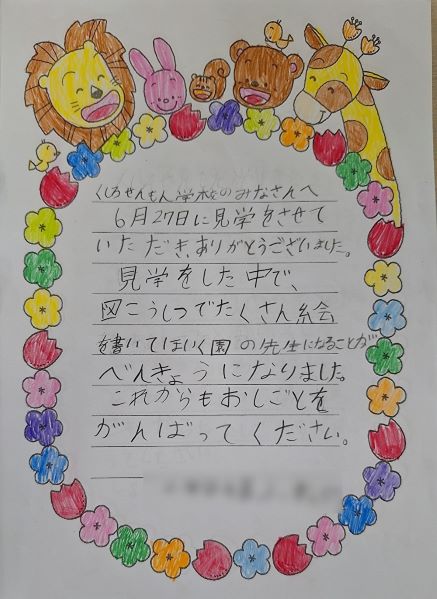 くしろせんもん学校のみなさんへ
6月27日に見学をさせて
いただき、ありがとうございました。
見学をした中で、
図こうしつでたくさん絵
を書いてほいく園の先生になることが
べんきょうになりました。
これからもおしごとを
がんばってください。